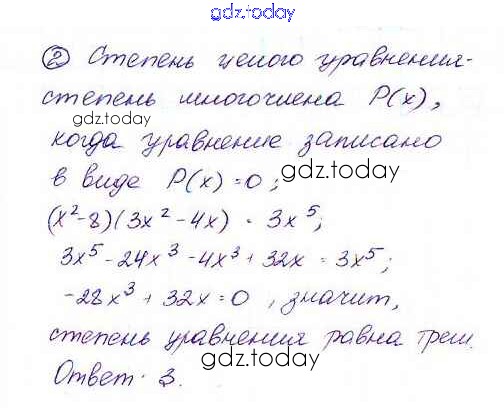 gdz.today
② Степень целого уравнения-
степень многочлена P(x),
gdz.today
когда уравнение записано
в виде P(x)=0;
gdz.today
(x²-8)(3x²-4x) = 3x⁵;
3x⁵-24x³-4x³+32x = 3x⁵;
-28x³+32x=0, значит,
степень уравнения равна трем.
gdz.today
Ответ: 3.